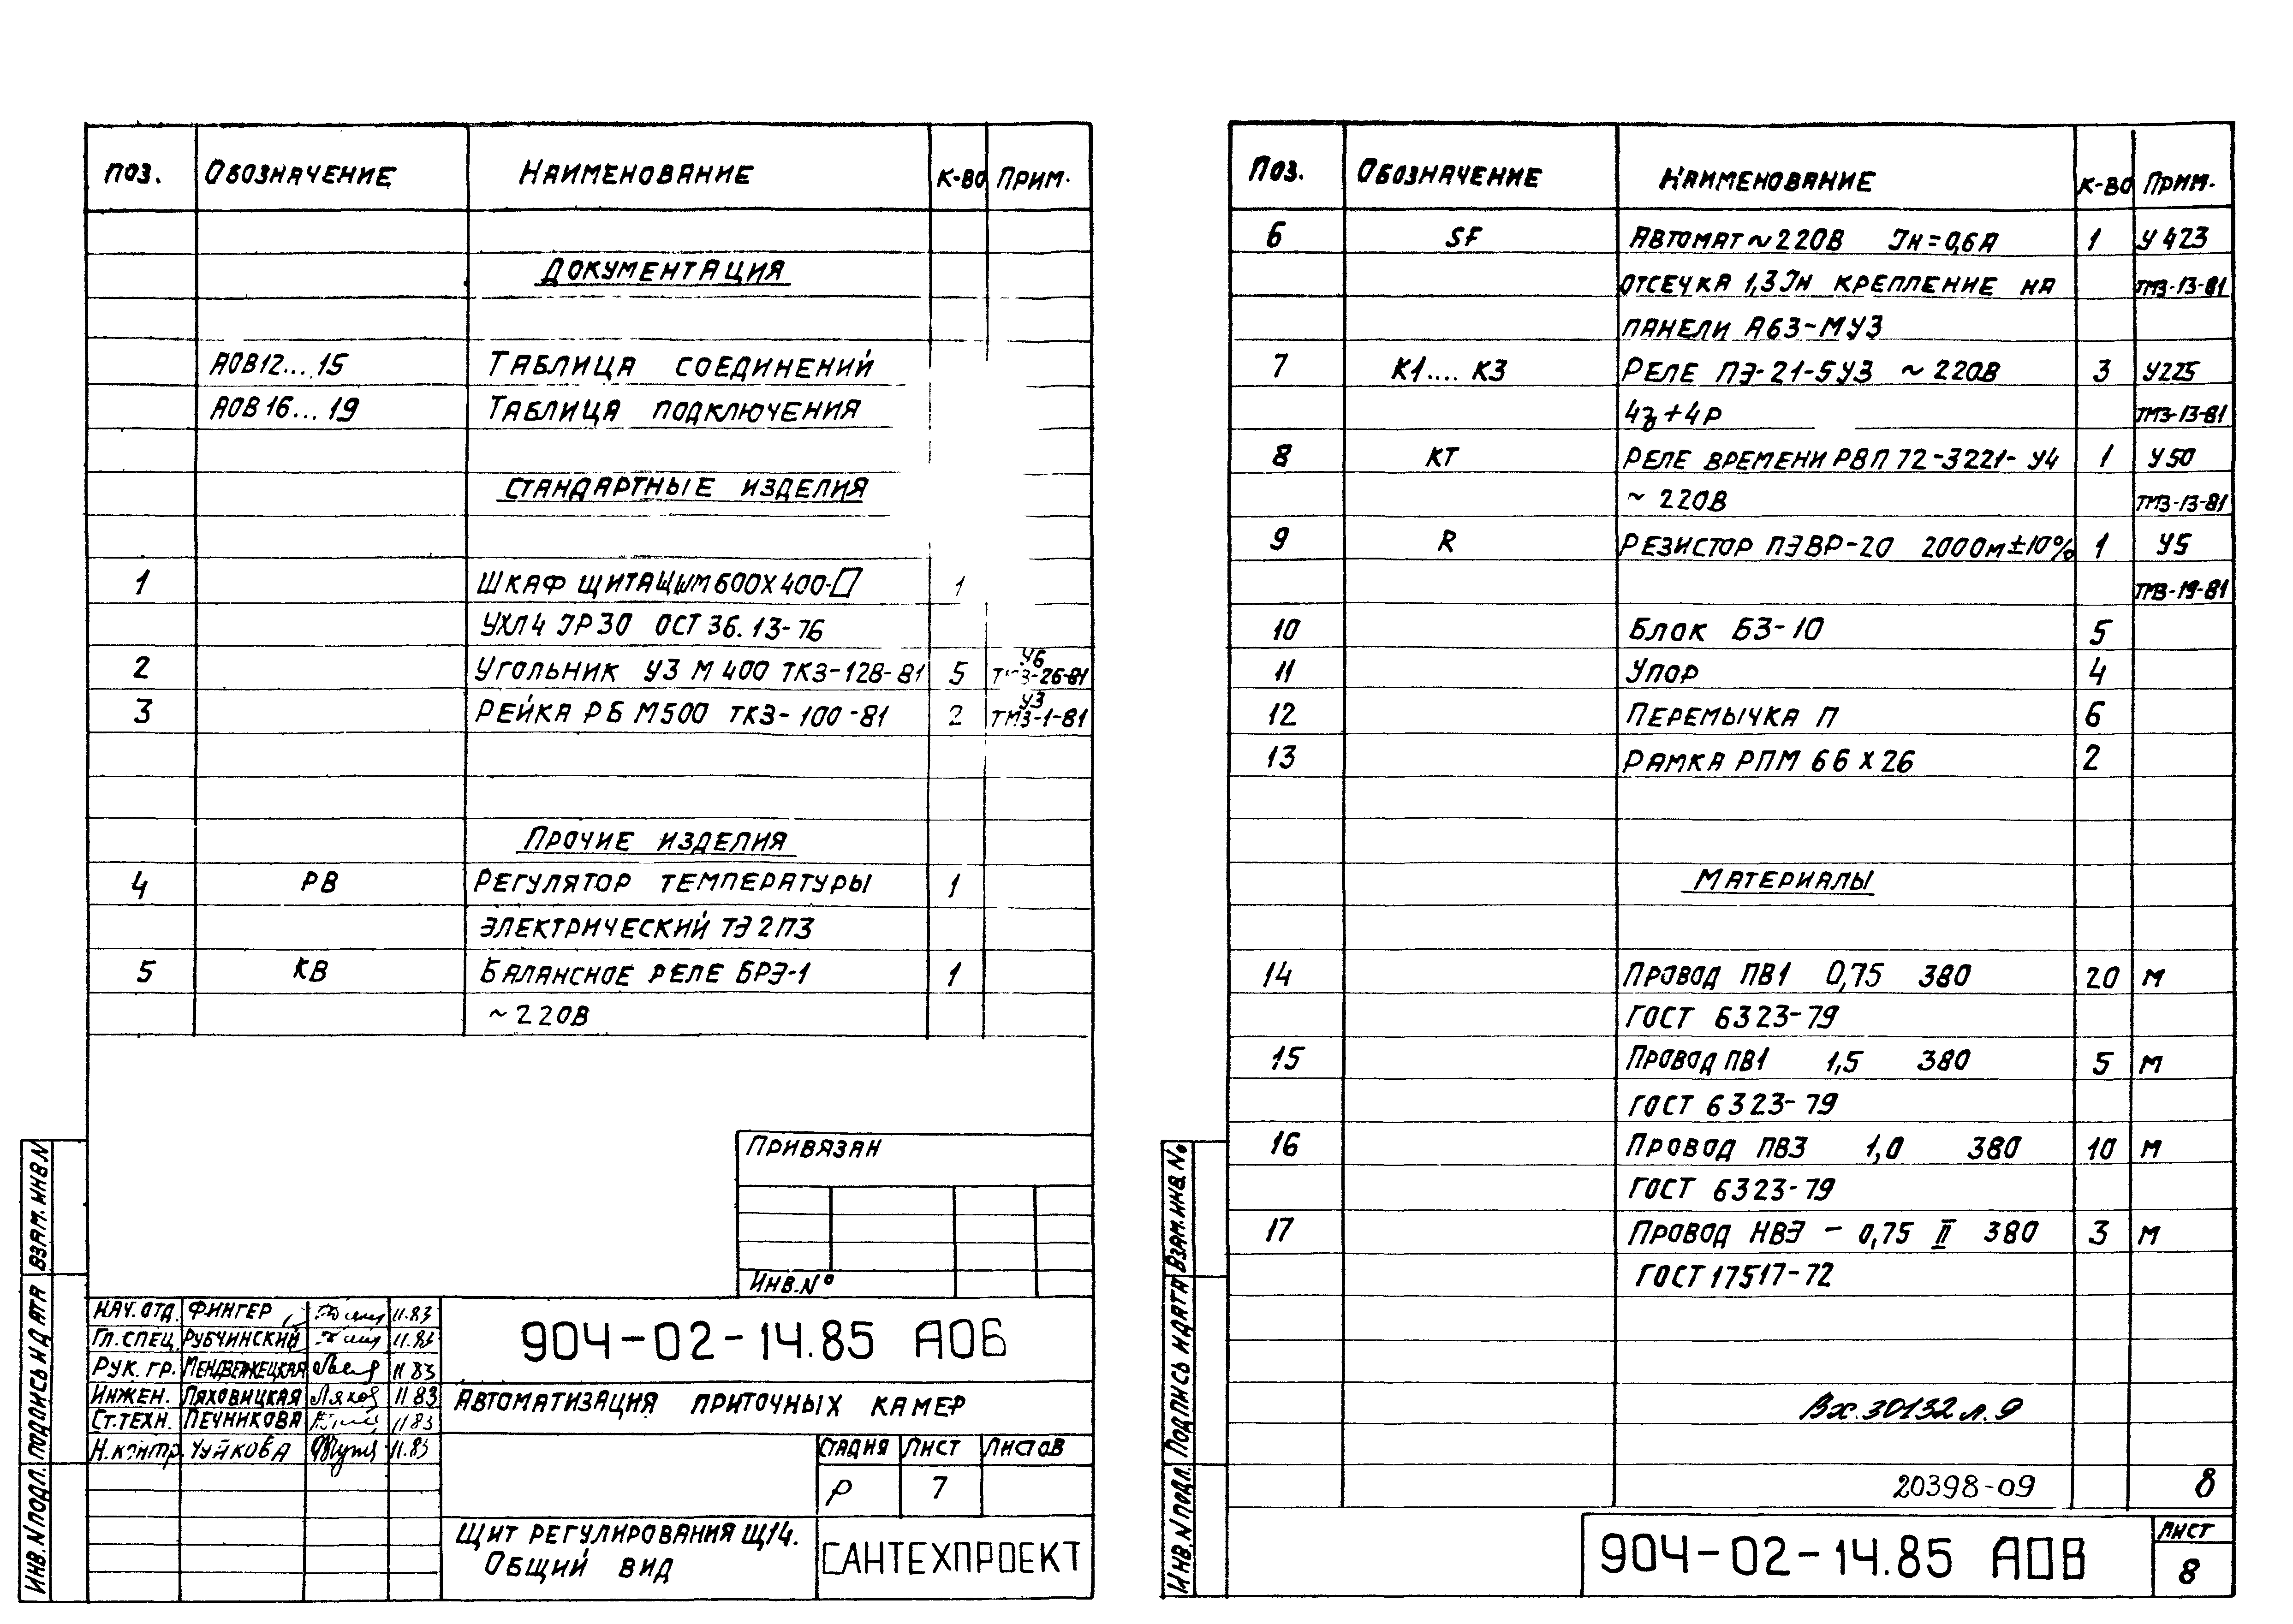 ПОЗ. ОБОЗНАЧЕНИЕ НАИМЕНОВАНИЕ К-ВО ПРИМ.
ДОКУМЕНТАЦИЯ
АОВ12...15 ТАБЛИЦА СОЕДИНЕНИЙ
АОВ16...19 ТАБЛИЦА ПОДКЛЮЧЕНИЯ
СТАНДАРТНЫЕ ИЗДЕЛИЯ
1 ШКАФ ЩИТА ЩШМ 600Х400-▱ 1
УХЛ4 IР30 ОСТ 36.13-76
У6
2 УГОЛЬНИК УЗ М 400 ТКЗ-128-81 5 ТМЗ-26-81
У3
3 РЕЙКА РБ М500 ТКЗ-100-81 2 ТМЗ-1-81
ПРОЧИЕ ИЗДЕЛИЯ
4 РВ РЕГУЛЯТОР ТЕМПЕРАТУРЫ 1
ЭЛЕКТРИЧЕСКИЙ ТЭ2ПЗ
5 КВ БАЛАНСНОЕ РЕЛЕ БРЭ-1 1
~220В
ПРИВЯЗАН
ИНВ.N°
НАЧ.ОТД. ФИНГЕР 11.83
ГЛ.СПЕЦ. РУБЧИНСКИЙ 11.83
РУК. ГР. МЕНДВЕЖЕЦКАЯ 11 83
ИНЖЕН. ЛЯХОВИЦКАЯ 11 83
СТ.ТЕХН. ПЕЧНИКОВА 11 83
Н.КОНТР. ЧУЙКОВА 11.83
904-02-14.85 АОВ
АВТОМАТИЗАЦИЯ ПРИТОЧНЫХ КАМЕР
СТАДИЯ ЛИСТ ЛИСТОВ
Р 7
ЩИТ РЕГУЛИРОВАНИЯ Щ14.
ОБЩИЙ ВИД
САНТЕХПРОЕКТ
ИНВ.N ПОДЛ. ПОДПИСЬ И ДАТА ВЗАМ. ИНВ.N
ПОЗ. ОБОЗНАЧЕНИЕ НАИМЕНОВАНИЕ К-ВО ПРИМ.
6 SF АВТОМАТ ~220В Iн=0,6А 1 У423
ОТСЕЧКА 1,3Iн КРЕПЛЕНИЕ НА ТМЗ-13-81
ПАНЕЛИ А63-МУ3
7 К1.... К3 РЕЛЕ ПЭ-21-5У3 ~220В 3 У225
4з+4Р ТМЗ-13-81
8 КТ РЕЛЕ ВРЕМЕНИ РВП 72-3221-У4 1 У50
~220В ТМЗ-13-81
9 R РЕЗИСТОР ПЭВР-20 200Ом±10% 1 У5
ТМЗ-19-81
10 БЛОК БЗ-10 5
11 УПОР 4
12 ПЕРЕМЫЧКА П 6
13 РАМКА РПМ 66Х26 2
МАТЕРИАЛЫ
14 ПРОВОД ПВ1 0,75 380 20 М
ГОСТ 6323-79
15 ПРОВОД ПВ1 1,5 380 5 М
ГОСТ 6323-79
16 ПРОВОД ПВ3 1,0 380 10 М
ГОСТ 6323-79
17 ПРОВОД НВЭ – 0,75 II 380 3 М
ГОСТ 17517-72
Вх. 30132 л. 9
20398-09 8
904-02-14.85 АОВ
ЛИСТ
8
ИНВ.N ПОДЛ. ПОДПИСЬ И ДАТА ВЗАМ.ИНВ.No